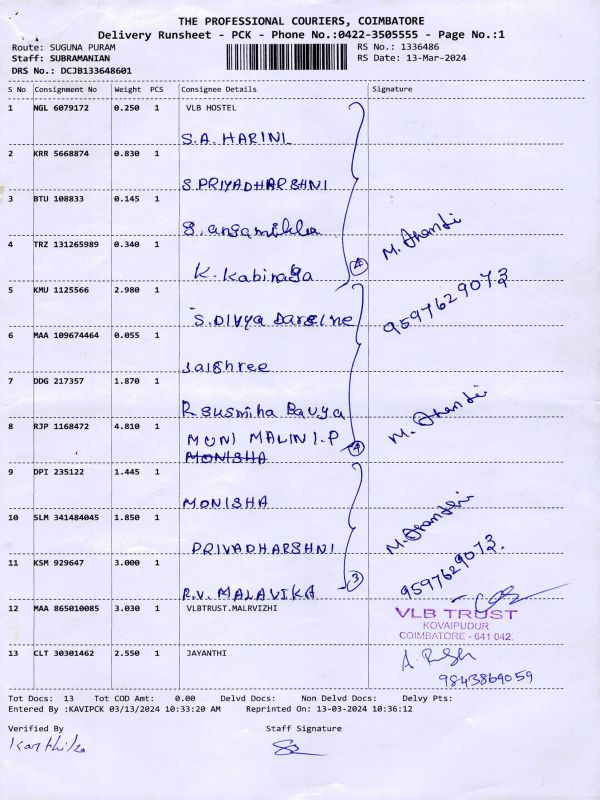 THE PROFESSIONAL COURIERS, COIMBATORE
Delivery Runsheet - PCK - Phone No.:0422-3505555 - Page No.:1
Route: SUGUNA PURAM RS No.: 1336486
Staff: SUBRAMANIAN RS Date: 13-Mar-2024
DRS No.: DCJB133648601
S No Consignment No Weight PCS Consignee Details Signature
1 NGL 6079172 0.250 1 VLB HOSTEL
S.A. HARINI
2 KRR 5668874 0.830 1
S.PRIYADHARSHNI
3 BTU 108833 0.145 1
M. Ananti
4 TRZ 131265989 0.340 1
K. Kabinaya 4
5 KMU 1125566 2.980 1
S.Divya Darsine 9597629073
6 MAA 109674464 0.055 1
Jaishree
7 DDG 217357 1.870 1
R susmiha Bavya M. Ananti
8 RJP 1168472 4.810 1 MUNI MALINI.P
MONISHA 4
9 DPI 235122 1.445 1
MONISHA
10 SLM 341484045 1.850 1
PRIVADHARSHNI M. Ananti
11 KSM 929647 3.000 1
R.V. MALAVIKA 3 9597629073.
12 MAA 865010085 3.030 1 VLBTRUST.MALRVIZHI
VLB TRUST
KOVAIPUDUR
COIMBATORE - 641 042.
13 CLT 30301462 2.550 1 JAYANTHI
9843869059
Tot Docs: 13 Tot COD Amt: 0.00 Delvd Docs: Non Delvd Docs: Delvy Pts:
Entered By :KAVIPCK 03/13/2024 10:33:20 AM Reprinted On: 13-03-2024 10:36:12
Verified By Staff Signature
Karthika